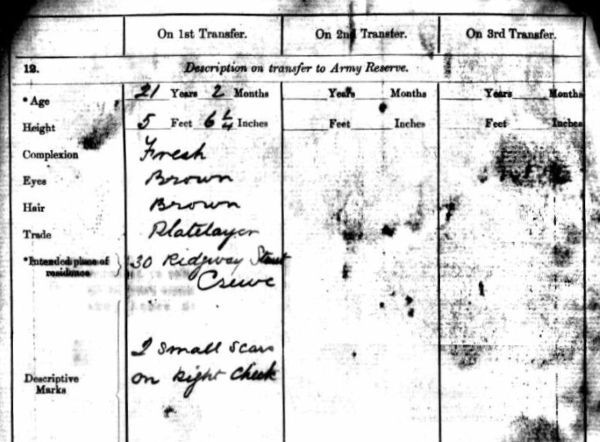 On 1st Transfer. On 2nd Transfer. On 3rd Transfer.
12. Description on transfer to Army Reserve.
*Age 21 Years 2 Months Years Months Years Months
Height 5 Feet 6 1/4 Inches Feet Inches Feet Inches
Complexion Fresh
Eyes Brown
Hair Brown
Trade Platelayer
*Intended place of residence 30 Ridgway Street
Crewe
2 Small Scars
Descriptive Marks on Right Cheek